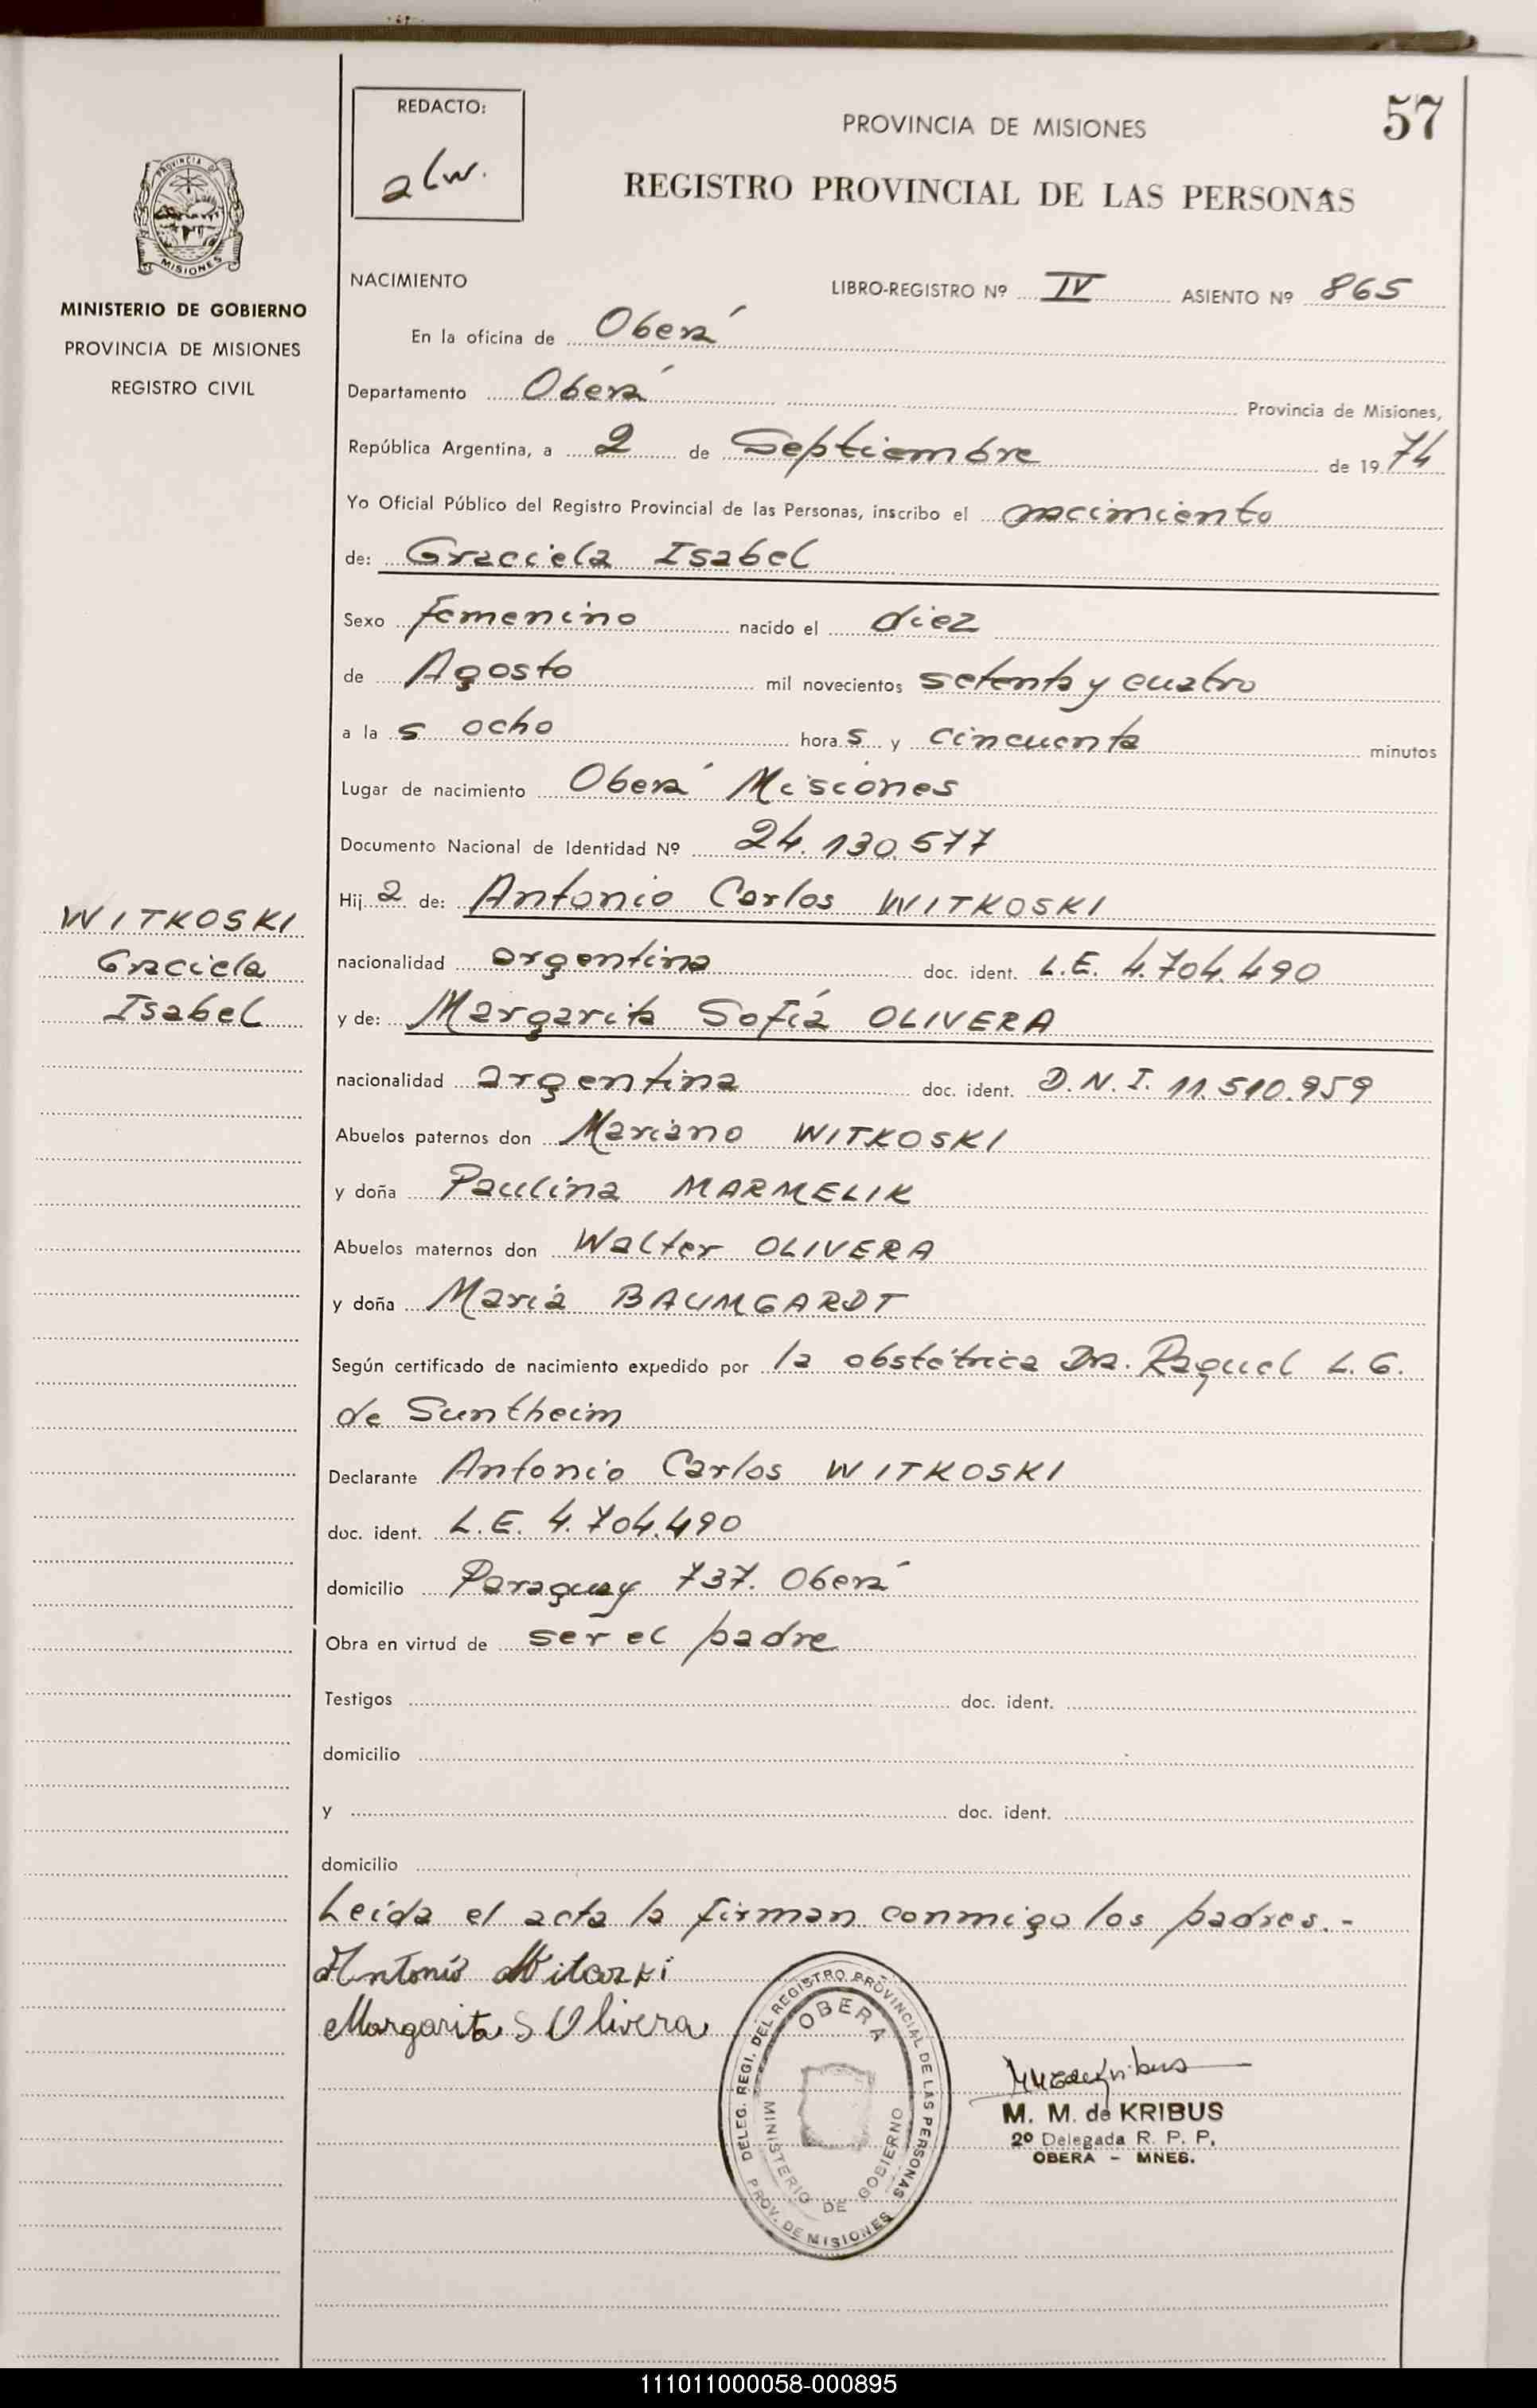 REDACTO:
alw.
PROVINCIA DE MISIONES
57
REGISTRO PROVINCIAL DE LAS PERSONAS
PROVINCIA DE
MISIONES
MINISTERIO DE GOBIERNO
PROVINCIA DE MISIONES
REGISTRO CIVIL
NACIMIENTO
LIBRO-REGISTRO Nº IV ASIENTO Nº 865
En la oficina de Oberá
Departamento Oberá Provincia de Misiones,
República Argentina, a 2 de Septiembre de 1974
Yo Oficial Público del Registro Provincial de las Personas, inscribo el nacimiento
de: Graciela Isabel
Sexo femenino nacido el diez
de Agosto mil novecientos setenta y cuatro
a la s ocho hora s y cincuenta minutos
Lugar de nacimiento Oberá Misiones
Documento Nacional de Identidad Nº 24.130.577
Hij a de: Antonio Carlos WITKOSKI
WITKOSKI
Graciela
Isabel
nacionalidad argentina doc. ident. L.E. 4.704.490
y de: Margarita Sofía OLIVERA
nacionalidad argentina doc. ident. D.N.I. 11.510.959
Abuelos paternos don Mariano WITKOSKI
y doña Paulina MARMELIK
Abuelos maternos don Walter OLIVERA
y doña María BAUMGARDT
Según certificado de nacimiento expedido por la obstétrica Dra. Raquel L. G.
de Suntheim
Declarante Antonio Carlos WITKOSKI
doc. ident. L.E. 4.704.490
domicilio Paraguay 737. Oberá
Obra en virtud de ser el padre
Testigos doc. ident.
domicilio
y doc. ident.
domicilio
Leída el acta la firman conmigo los padres.-
Antonio Witcoski
Margarita S Olivera
DELEG. REGI. DEL REGISTRO PROVINCIAL DE LAS PERSONAS
OBERA
MINISTERIO DE GOBIERNO
PROV. DE MISIONES
M. M. de KRIBUS
2º Delegada R. P. P.
OBERA - MNES.
111011000058-000895